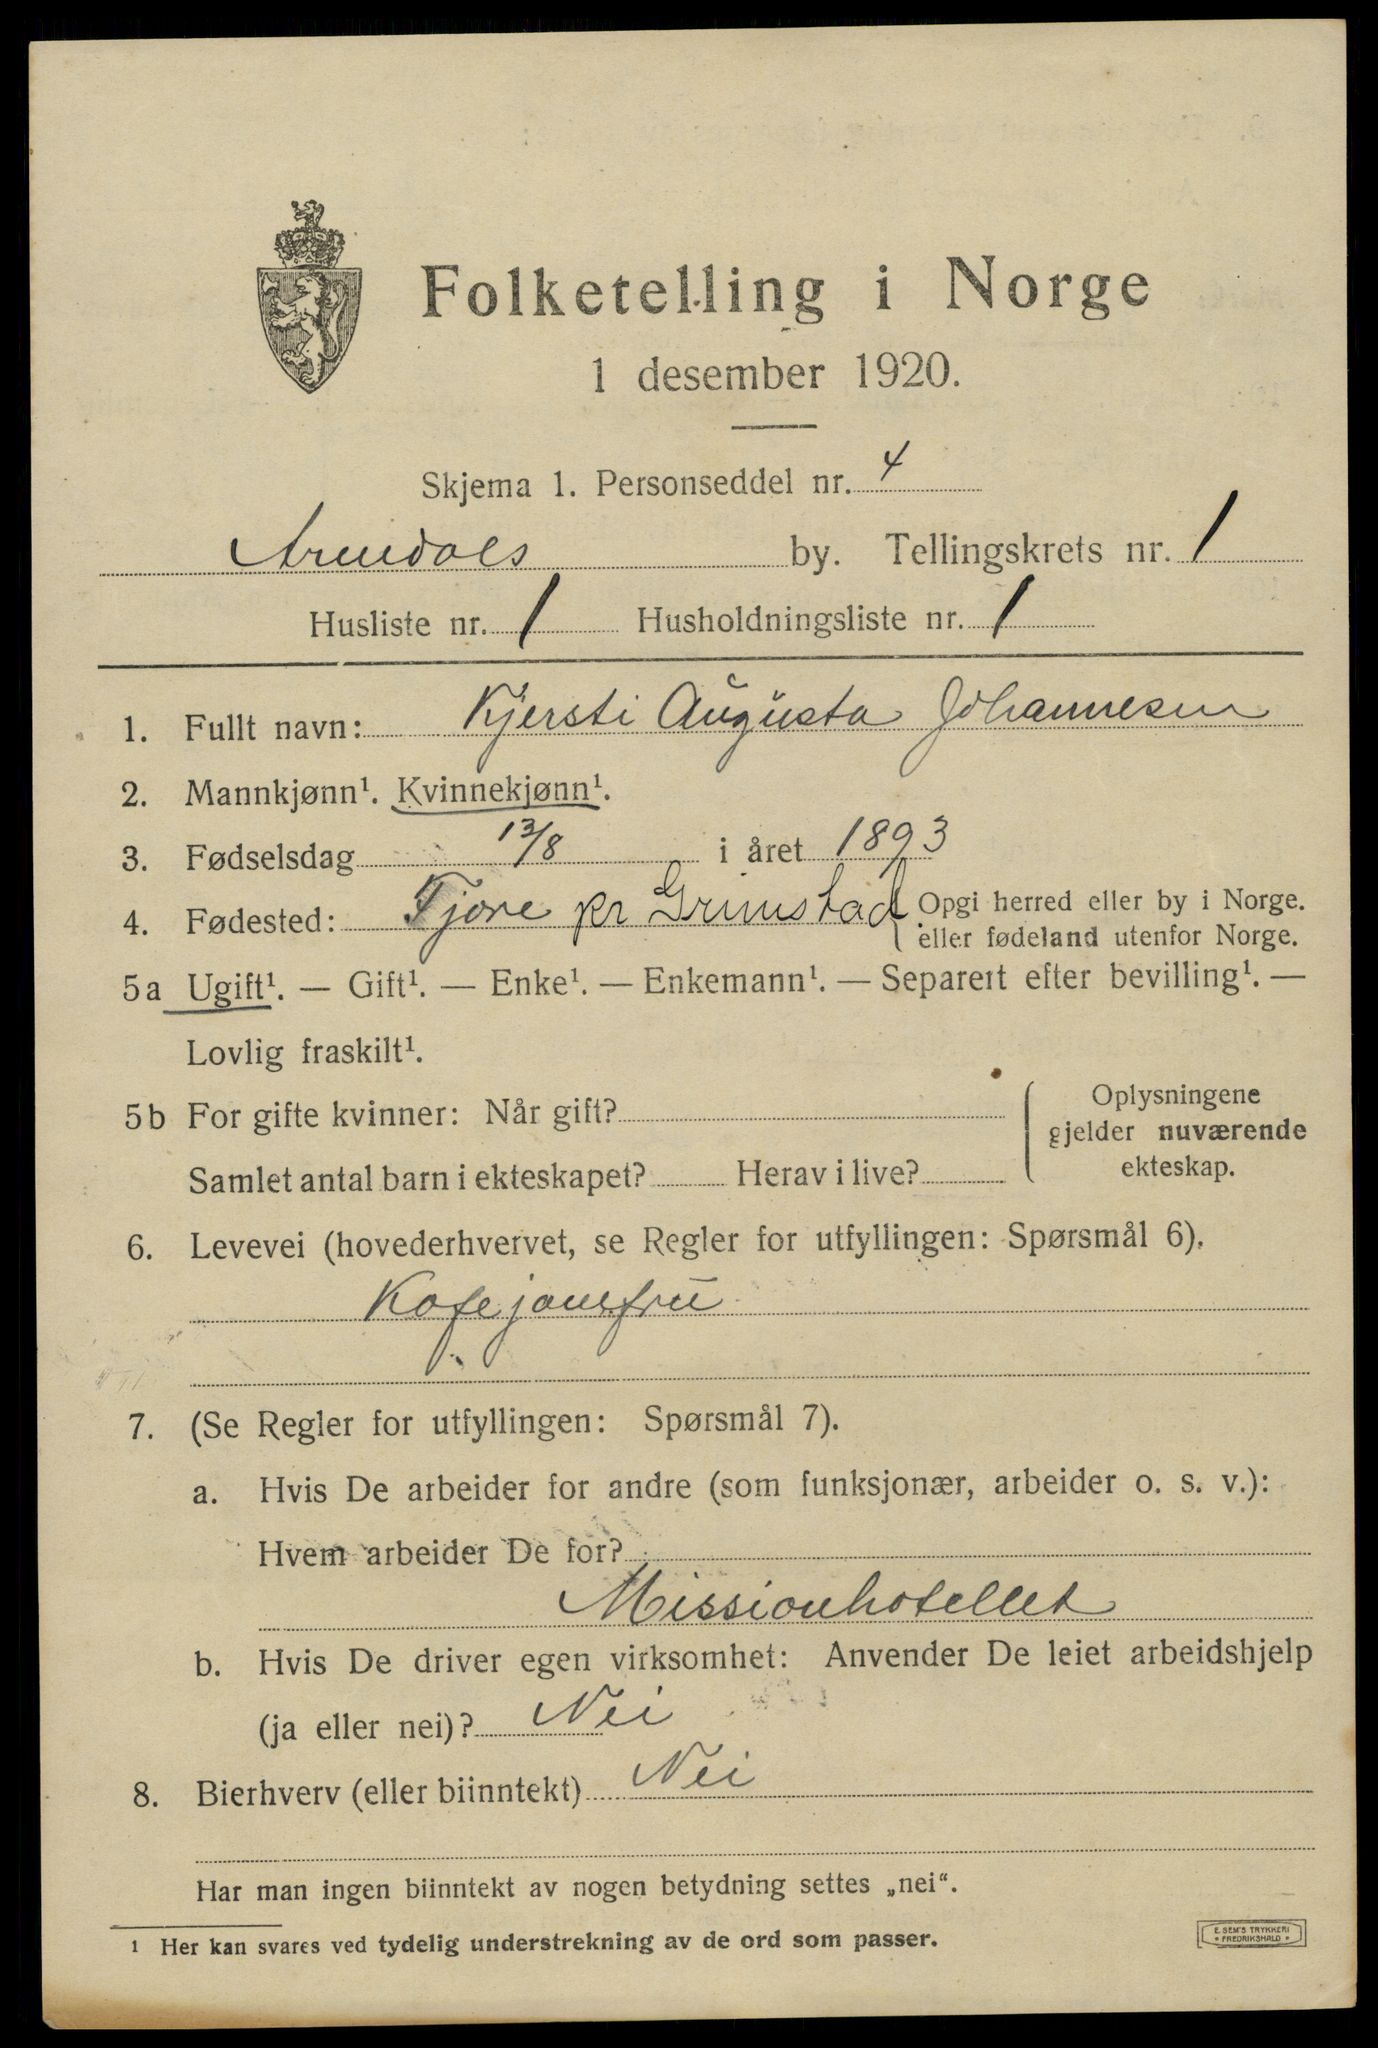 Folketelling i Norge
1 desember 1920.
Skjema 1. Personseddel nr. 4
Arendals by. Tellingskrets nr. 1
Husliste nr. 1 Husholdningsliste nr. 1
1. Fullt navn: Kjersti Augusta Johannesen
2. Mannkjønn¹. Kvinnekjønn¹.
3. Fødselsdag 13/8 i året 1893
4. Fødested: Fjære pr Grimstad { Opgi herred eller by i Norge.
eller fødeland utenfor Norge.
5a Ugift¹. — Gift¹. — Enke¹. — Enkemann¹. — Separert efter bevilling¹. —
Lovlig fraskilt¹.
5b For gifte kvinner: Når gift?
Samlet antal barn i ekteskapet? Herav i live?
Oplysningene
gjelder nuværende
ekteskap.
6. Levevei (hovederhvervet, se Regler for utfyllingen: Spørsmål 6).
Kafejomfru
7. (Se Regler for utfyllingen: Spørsmål 7).
a. Hvis De arbeider for andre (som funksjonær, arbeider o. s. v.):
Hvem arbeider De for?
Missionhotellet
b. Hvis De driver egen virksomhet: Anvender De leiet arbeidshjelp
(ja eller nei)? Nei
8. Bierhverv (eller biinntekt) Nei
Har man ingen biinntekt av nogen betydning settes „nei“.
¹ Her kan svares ved tydelig understrekning av de ord som passer.
E. SEM'S TRYKKERI
• FREDRIKSHALD •